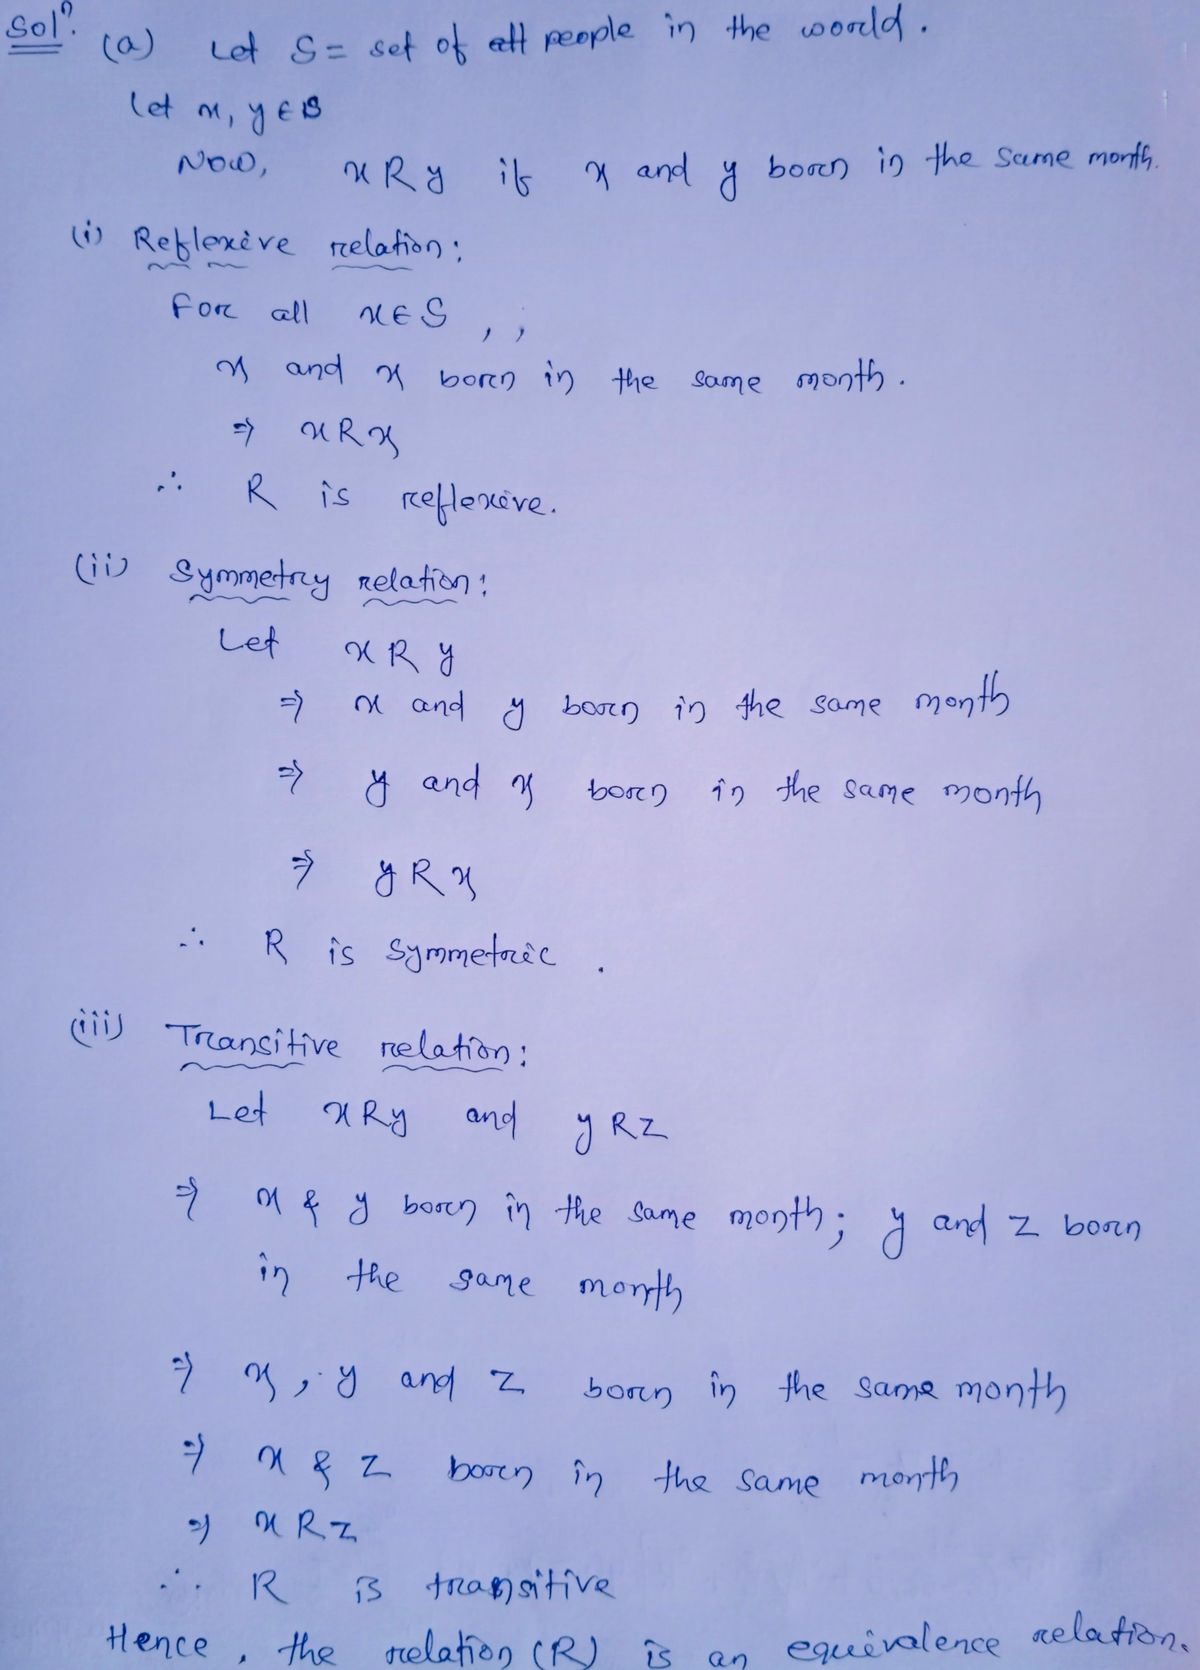 Solⁿ. (a) Let S = set of all people in the world.
Let x, y ∈ S
Now, x R y if x and y born in the same month.
(i) Reflexive relation:
For all x ∈ S , ,
x and x born in the same month.
⇒ x R x
∴ R is reflexive.
(ii) Symmetry relation:
Let x R y
⇒ x and y born in the same month
⇒ y and x born in the same month
⇒ y R x
∴ R is symmetric .
(iii) Transitive relation:
Let x R y and y R z
⇒ x & y born in the same month; y and z born
in the same month
⇒ x, y and z born in the same month
⇒ x & z born in the same month
⇒ x R z
∴ R is transitive
Hence, the relation (R) is an equivalence relation.